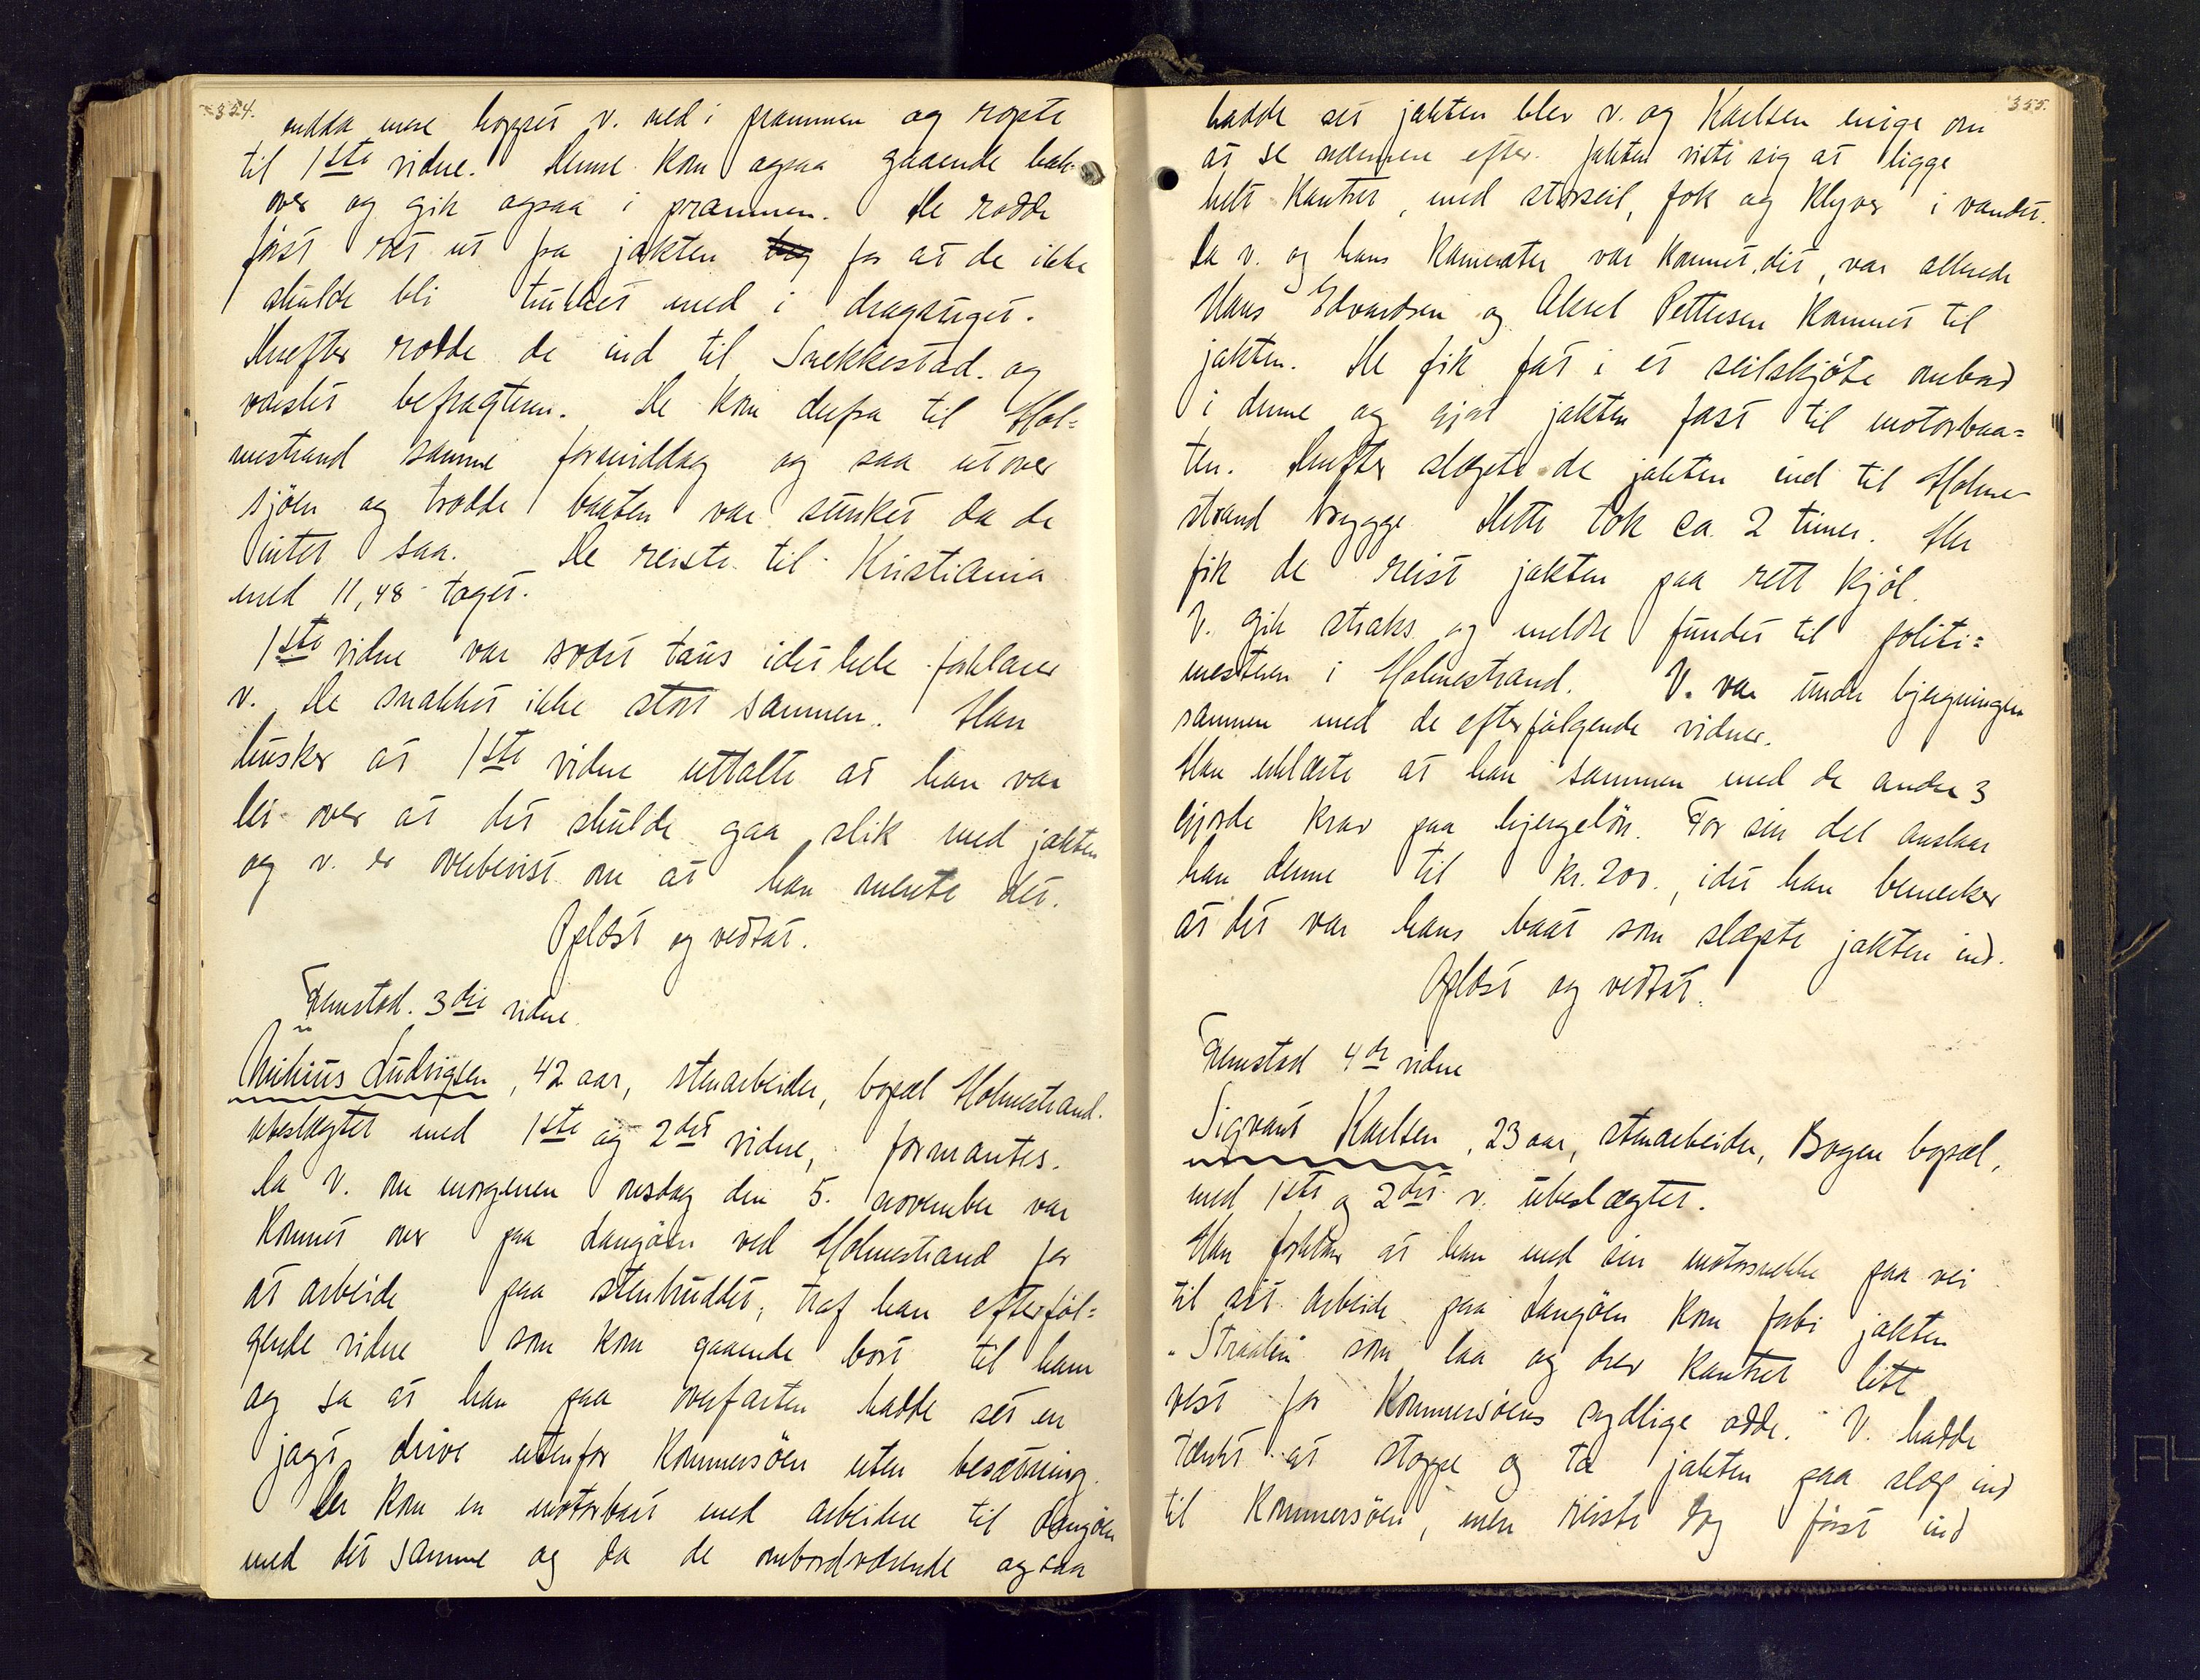 354.
endda mere hoppet v. ned i prammen og ropte
til 1ste vidne. Denne kom ogsaa gaaende bak-
over og gik ogsaa i prammen. De rodde
först ret ut fra jakten for at de ikke
skulde bli trukket med i dragsuget.
Derefter rodde de ind til Snekkestad og
varslet befragteren. De kom derfra til Hol=
mestrand samme formiddag og saa utover
sjöen og trodde baaten var sunket da de
intet saa. De reiste til Kristiania
med 11,48 toget.
1ste vidne var svært taus idet hele forklarer
v. De snakket ikke stort sammen. Han
husker at 1ste vidne uttalte at han var
lei over at det skulde gaa slik med jakten
og v. er overbevist om at han mente det.
Oplæst og vedtat.
Fremstod. 3die vidne.
Ludvigsen, 42 aar, stenarbeider, bopæl Holmestrand.
ubeslegtet med 1ste og 2det vidne, formantes.
Da V. om morgenen onsdag den 5. november var
kommet over paa Langöen ved Holmestrand for
at arbeide paa stenbruddet, traf han efterföl=
gende vidne som kom gaaende bort til ham
og sa at han paa overfarten hadde set en
jagt drive utenfor Kommersöen uten besætning.
Der kom en motorbaat med arbeidere til Langöen
med det samme og da de ombordværende ogsaa
355.
hadde set jakten blev v. og Karlsen enige om
at se nærmere efter. Jakten viste sig at ligge
helt kantret, med storseil, fok og klyver i vandet.
Da v. og hans kamerater var kommet dit, var allerede
Hans Edvardsen og Aksel Pettersen kommet til
jakten. De fik fat i et seilskjöte ombord
i denne og gjort jakten fast til motorbaa=
ten. Derefter slæpte de jakten ind til Holme-
strand brygge. Dette tok ca. 2 timer. Her
fik de reist jakten paa rett kjöl.
V. gik straks og meldte fundet til politi=
mesteren i Holmestrand. V. var under bjergningen
sammen med de efterfölgende vidner.
Han erklærte at han sammen med de andre 3
gjorde krav paa bjergelön. For sin del anslaar
han denne til kr. 200., idet han bemerker
at det var hans baat som slæpte jakten ind.
Oplæst og vedtat.
Fremstod 4de vidne
Sigvart Karlsen, 23 aar, stenarbeider, Bogen bopæl,
med 1ste og 2det v. ubeslægtet.
Han forklarer at han med sin motorsnekke paa vei
til sit arbeide paa Langöen kom forbi jakten
"Straalen" som laa og drev kantret litt
vest for Kommersöens sydlige odde. V. hadde
tænkt at stoppe og ta jakten paa slæp ind
til Kommersöen, men reiste dog först ind